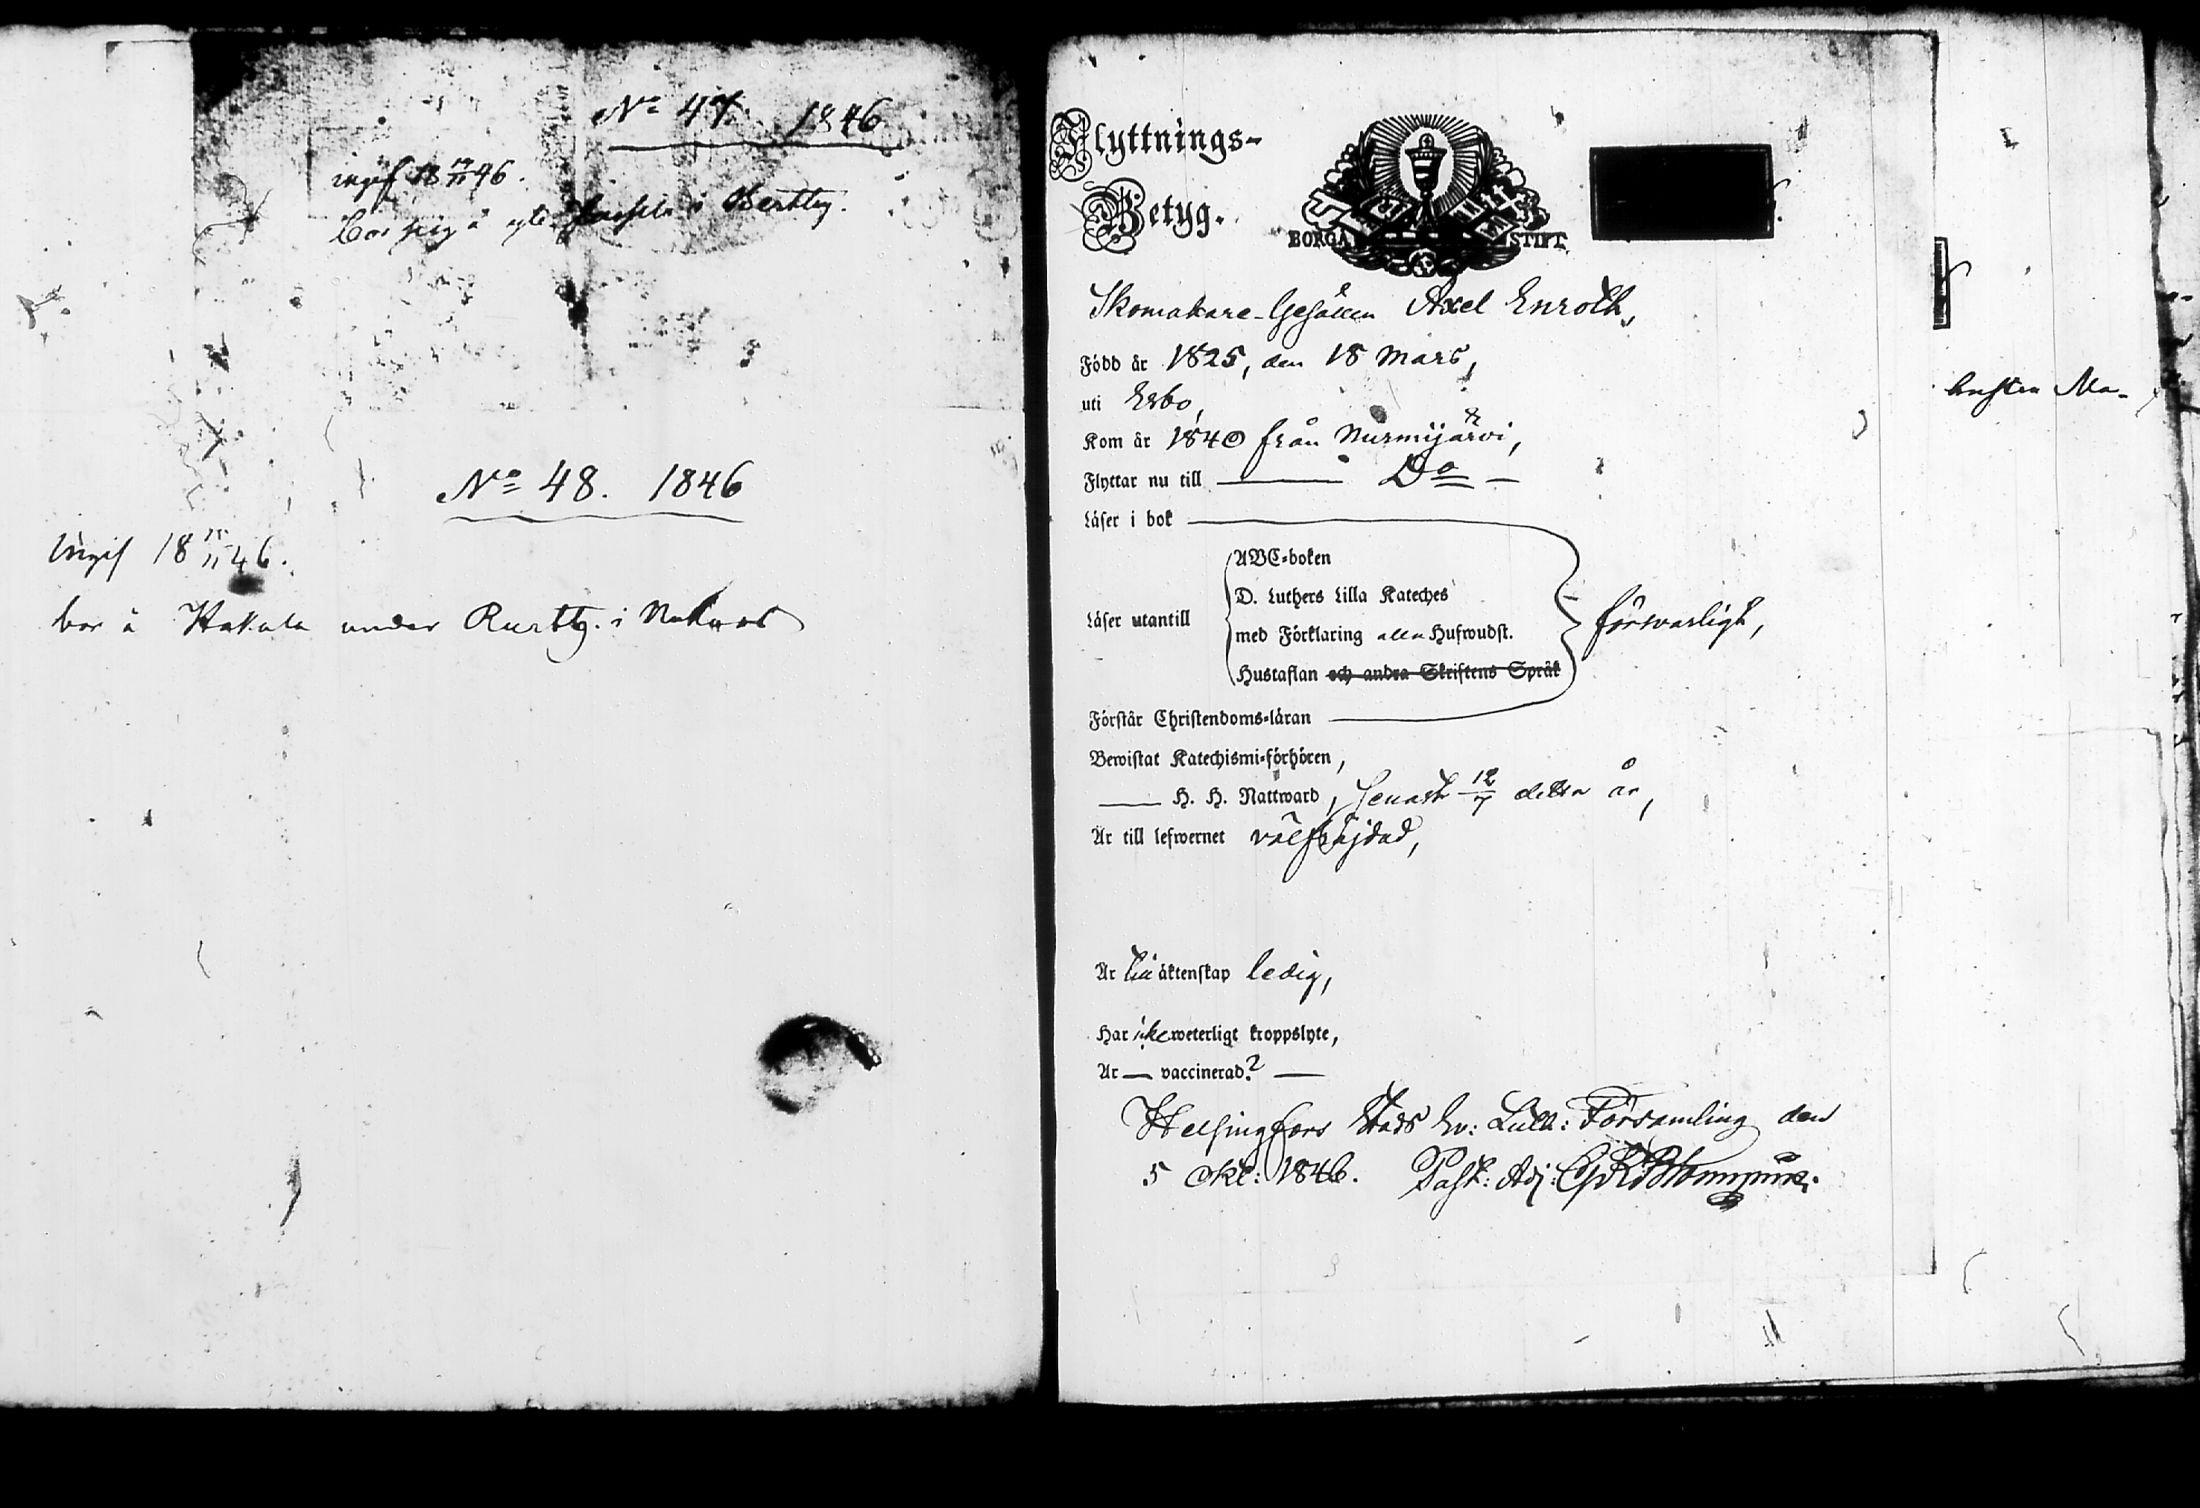 No 47. 1846
ingif 18 11 46.
No 48. 1846
Ingif 18 11 46.
bor å Hakala under i
Flyttnings-
Betyg.
BORGÅ STIFT.
Skomakare-Gesällen Axel Enroth,
Född år 1825, den 18 Mars,
uti Esbo,
Kom år 1840 från Nurmijärvi,
Flyttar nu till Do
Läser i bok
ABC-boken
D. Luthers Lilla Kateches
Läser utantill
med Förklaring alla Hufwudst.
försvarligt,
Hustaflan och andra Skriftens Språk
Förstår Christendoms-läran
Bewistat Katechismi-förhören,
H. H. Nattward, senast 12/7 detta år,
Är till lefwernet välfräjdad,
Är till äktenskap ledig,
Har icke weterligt kroppslyte,
Är — vaccinerad?
Helsingfors Stads Ev: Luth: Församling den
5 Okt: 1846. Past: Adj: